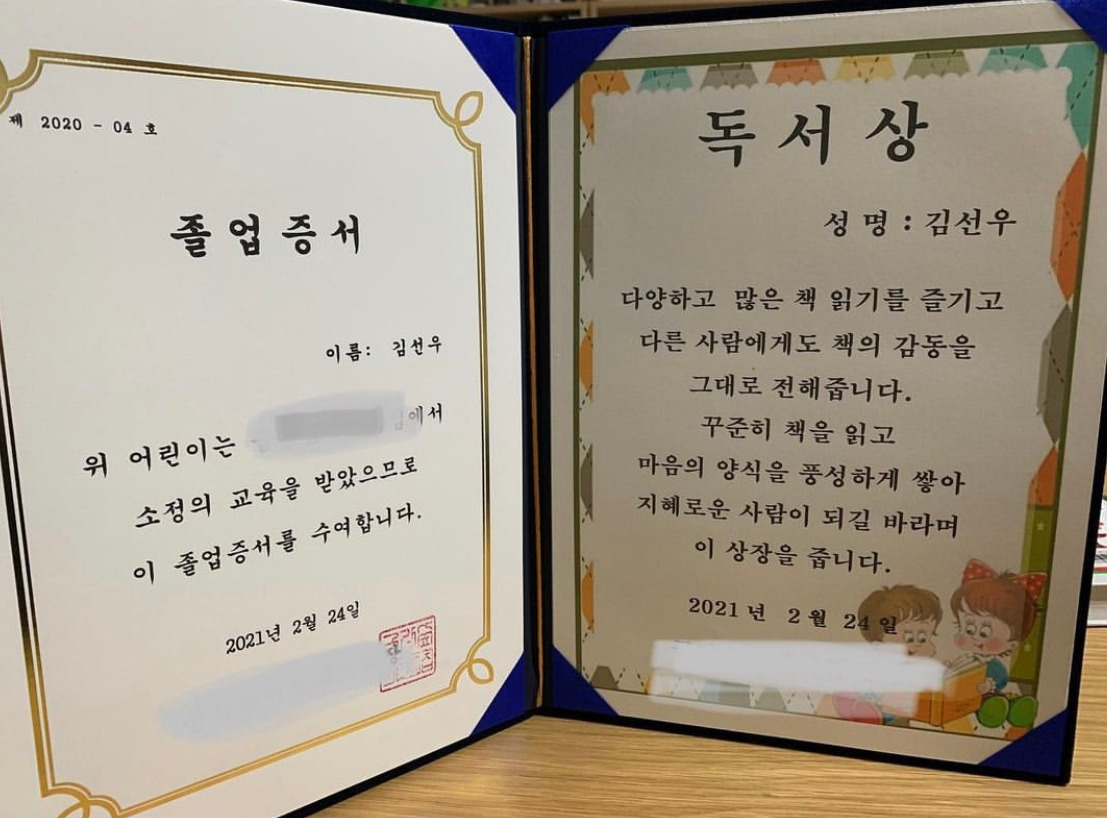 제 2020 - 04 호
졸업증서
이름: 김선우
위 어린이는 에서
소정의 교육을 받았으므로
이 졸업증서를 수여합니다.
2021년 2월 24일
독서상
성 명 : 김선우
다양하고 많은 책 읽기를 즐기고
다른 사람에게도 책의 감동을
그대로 전해줍니다.
꾸준히 책을 읽고
마음의 양식을 풍성하게 쌓아
지혜로운 사람이 되길 바라며
이 상장을 줍니다.
2021 년 2 월 24 일